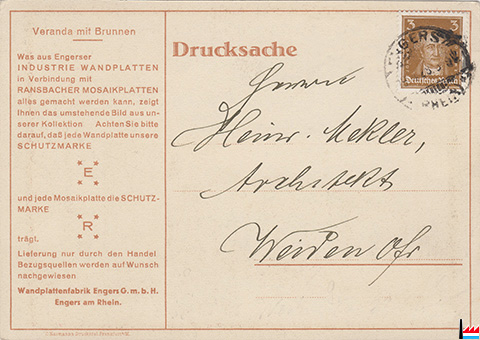 Veranda mit Brunnen
Was aus Engerser
INDUSTRIE WANDPLATTEN
in Verbindung mit
RANSBACHER MOSAIKPLATTEN
alles gemacht werden kann, zeigt
Ihnen das umstehende Bild aus un-
serer Kollektion Achten Sie bitte
darauf, daß jede Wandplatte unsere
SCHUTZMARKE
E
und jede Mosaikplatte die SCHUTZ-
MARKE
R
trägt.
Lieferung nur durch den Handel
Bezugsquellen werden auf Wunsch
nachgewiesen
Wandplattenfabrik Engers G. m. b. H.
Engers am Rhein.
Drucksache
3 3
Deutsches Reich
ENGERS
RHEIN
Herrn
Heinr. Mekler,
Architekt
Weiden Ofr